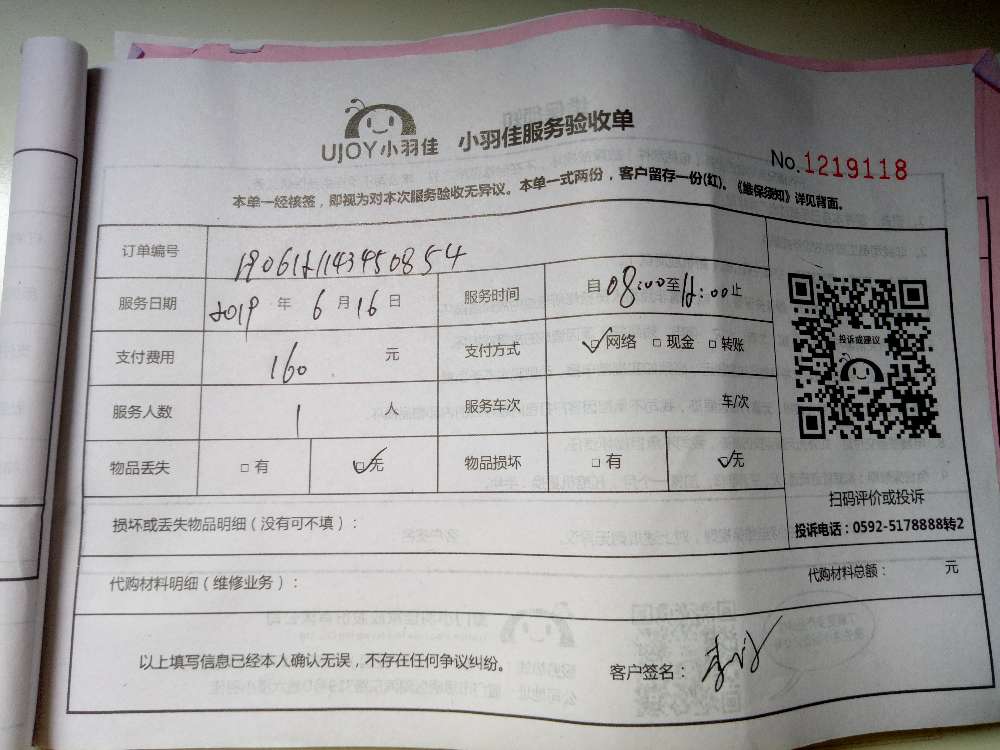 UJOY小羽佳 小羽佳服务验收单
No.1219118
本单一经核签，即视为对本次服务验收无异议。本单一式两份，客户留存一份(红)。《维保须知》详见背面。
订单编号
服务日期 2019 年 6 月 16 日 服务时间 自 08:00 至 12:00 止
支付费用 160 元 支付方式 ☑网络 □现金 □转账
投诉或建议
服务人数 1 人 服务车次 车/次
物品丢失 □有 ☑无 物品损坏 □有 ☑无
扫码评价或投诉
损坏或丢失物品明细（没有可不填）：
投诉电话：0592-5178888转2
代购材料明细（维修业务）： 代购材料总额： 元
以上填写信息已经本人确认无误，不存在任何争议纠纷。 客户签名：